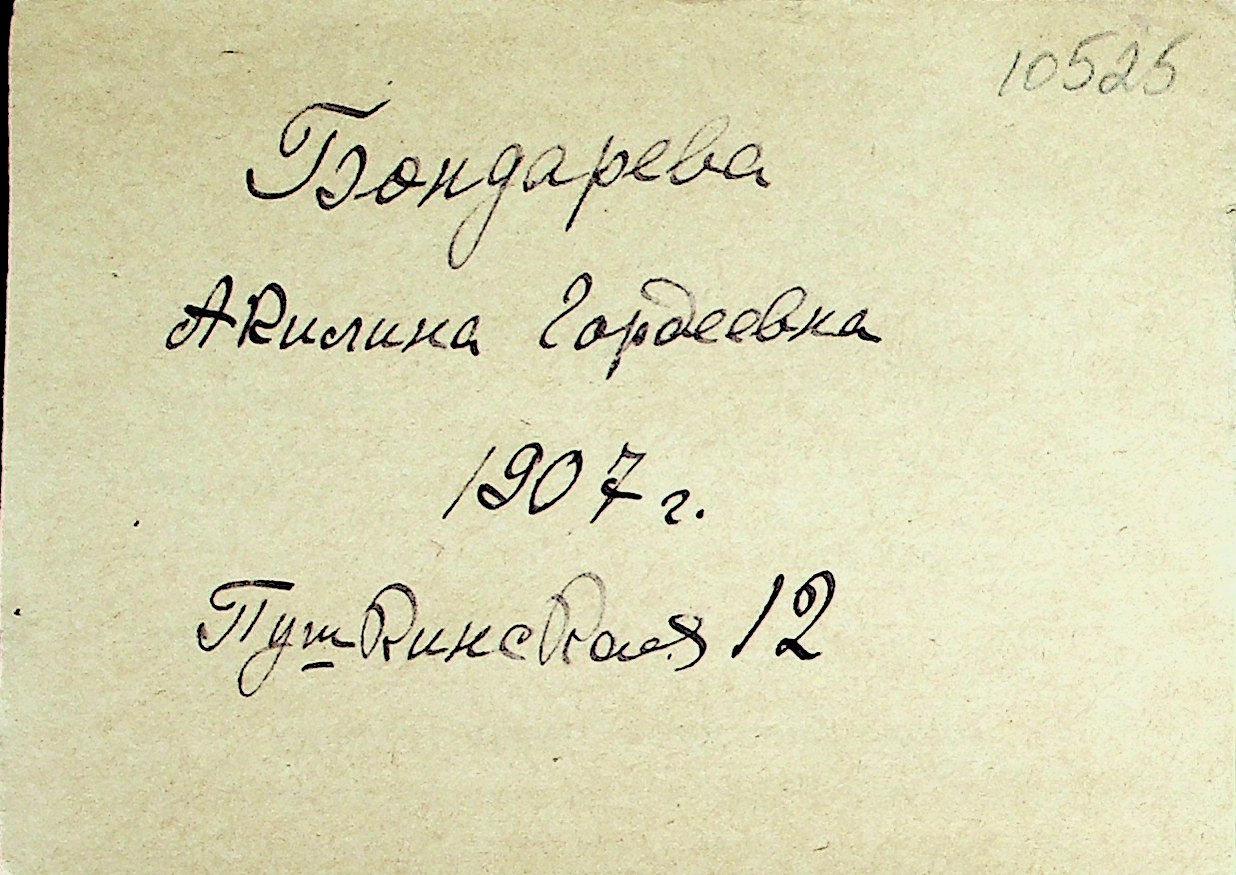 10525
Бондарева
Акилина Гордеевна
1907 г.
Пушкинская 12